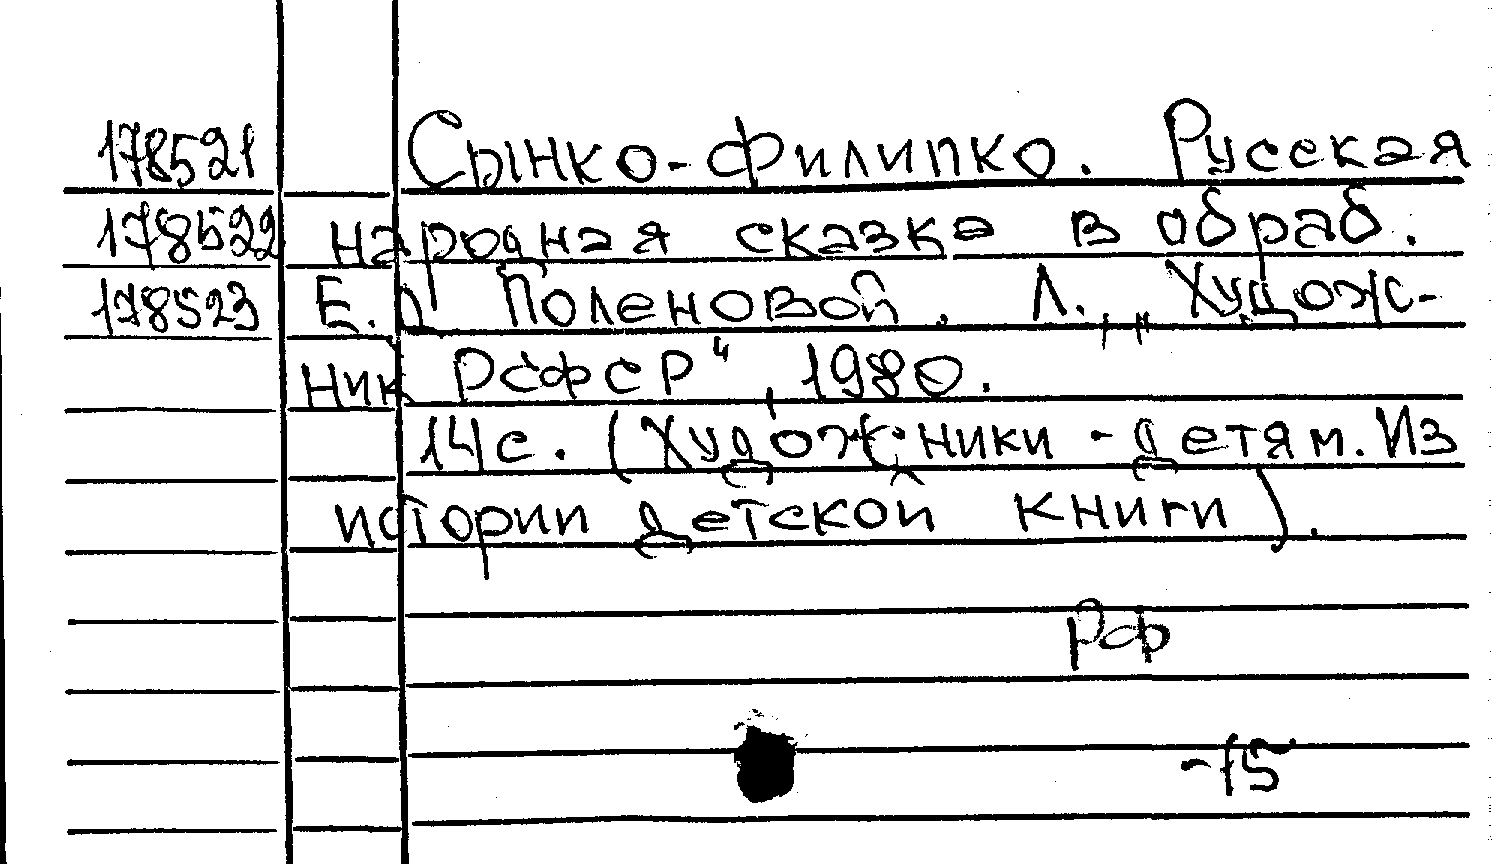 178521 Сынко-Филипко. Русская
178522 народная сказка в обраб.
178523 Е.Д Поленовой. Л., "Худож-
ник РСФСР", 1980.
14с. (Художники - детям. Из
истории детской книги).
Рф
-15